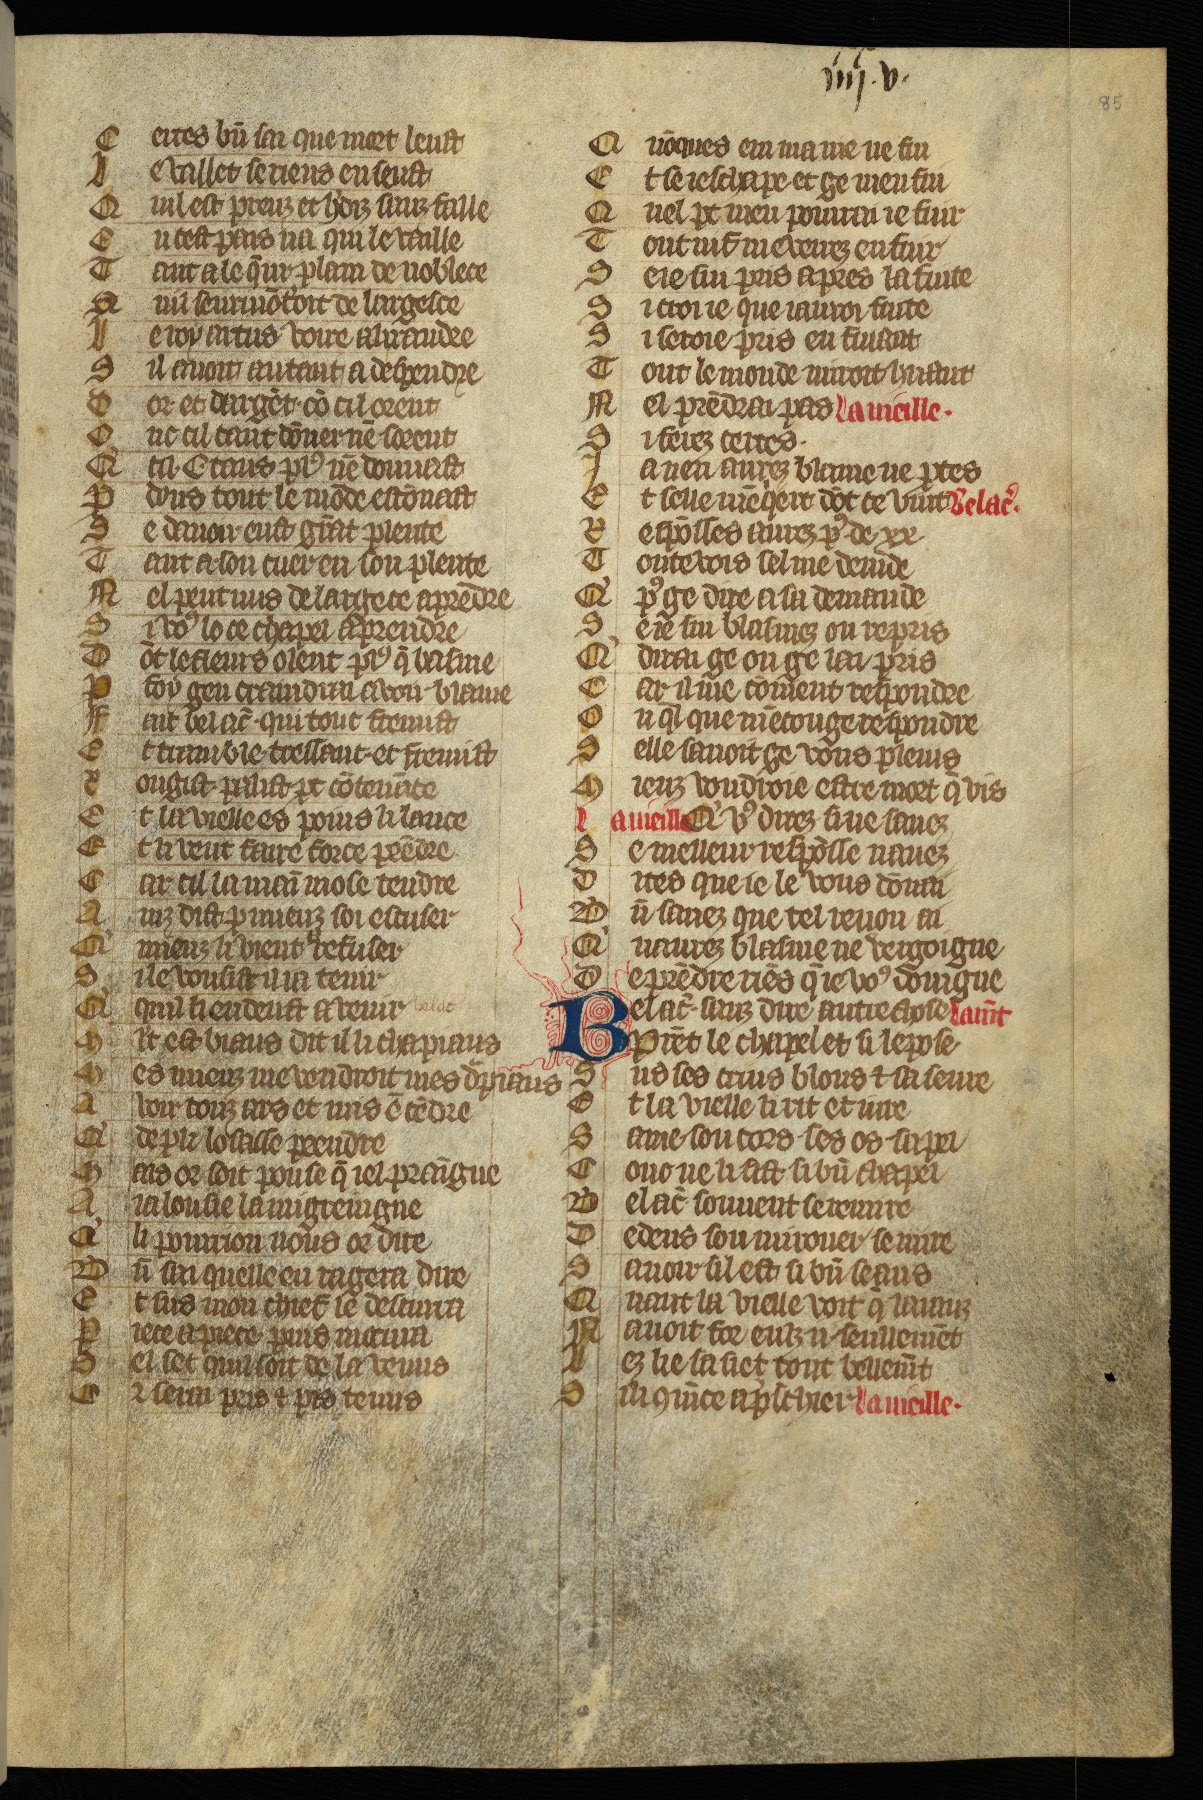 iiij.xx v.
85
C ertes bn̄ sai que mort leust
L e vallet se riens en seust
Q uil est preuz et hardiz sanz faille
E n cest pais na qui le vaille
T ant a le q̄ur plain de noblece
S seurmōtoit de largesce
L e roy artus voire alixandre
S il avoit autant a despendre
D or et dargēt cō cil orent
O nc cil tant dōner nē sorent
Q ta. C. tans pl9 nē donnast
P dons tout le mōde estōnast
S e davoir eust grāt plente
T ant a son cuer en son plente
N el peut nus de largece aprēdre
S i vo9 lo ce chapel a prendre
D ōt les fleurs olent pl9 q̄ basme
P foy gen craindrai avoir blasme
F ait bel ac̄. qui tout fremist
E t tramble tressaut et fremist
R ougist palist pt cōtenāce
E t la vielle es poins li lance
E t li veut faire force prēdre
C ar cil la main mose tendre
A inz dist p mieuz soi escuser
Q mieuz li vient refuser
S i le vousist il ia tenir
Q quil li en deust avenir belac
M lt est biaus dit il li chapiaus
M es mieuz me vendroit mes drapiaus
A voir touz ars et mis ē cēdre
Q de p li losasse prendre
M ais or soit pouse q̄ iel praingne
A ia lousie la migreingne
Q li pourrion nous or dire
B n̄ sai quelle en ragera dire
E t sus mon chief le descirra
P iece a piece puis mocirra
S el set quil soit de la venus
O u serai pris t pis tenus
Q nōques en ma vie ne fui
E t se ieschape et ge men fui
Q uel pt men pourrai ie fuir
T out vif me verrez enfuir
S e ie sui pris apres la fuite
S i croi ie que iauroi fuite
S i seroie pris en fuiant
T out le monde miroit huiant
N el prēdrai pas La vieille.
S i ferez certes.
J a nen aurez blasme ne ptes
E t selle mēq̄ert dōt ce vint Bel ac̄.
R espōsses aurez p9 de xx
T outevois sel me demāde
Q p9 ge dire a sa demande
S e ie sui blasmez ou repris
Q dirai ge ou ge lai pris
C ar il me cōment respondre
O u q̄l que mēconge respondre
S elle savoit ge vous plevis
M ieuz voudroie estre mort q̄ vis
La vieille Q v9 direz si ne savez
S e melleur respōsse navez
D ites que ie le vous donai
B n̄ savez que tel renon ai
Q naurez blasme ne vergoigne
D e prēdre riēs q̄ ie vo9 dongne
B el ac̄. sanz dire autre chose Lam̄t
Prēt le chapel et si le pose
S us ses crins blons t sa seure
E t la vielle li rit et iure
S ame son cors ses os sa pel
C onc ne li sist si bn̄ chapel
B el ac̄ souvent se remire
D edens son mirouer se mire
S avoir sil est si bn̄ seans
Q uant la vielle voit q̄ laienz
N avoit for eulz ij seullemēt
L ez lie sassiet tout bellem̄t
S i li cmēce a pschier La vieille.